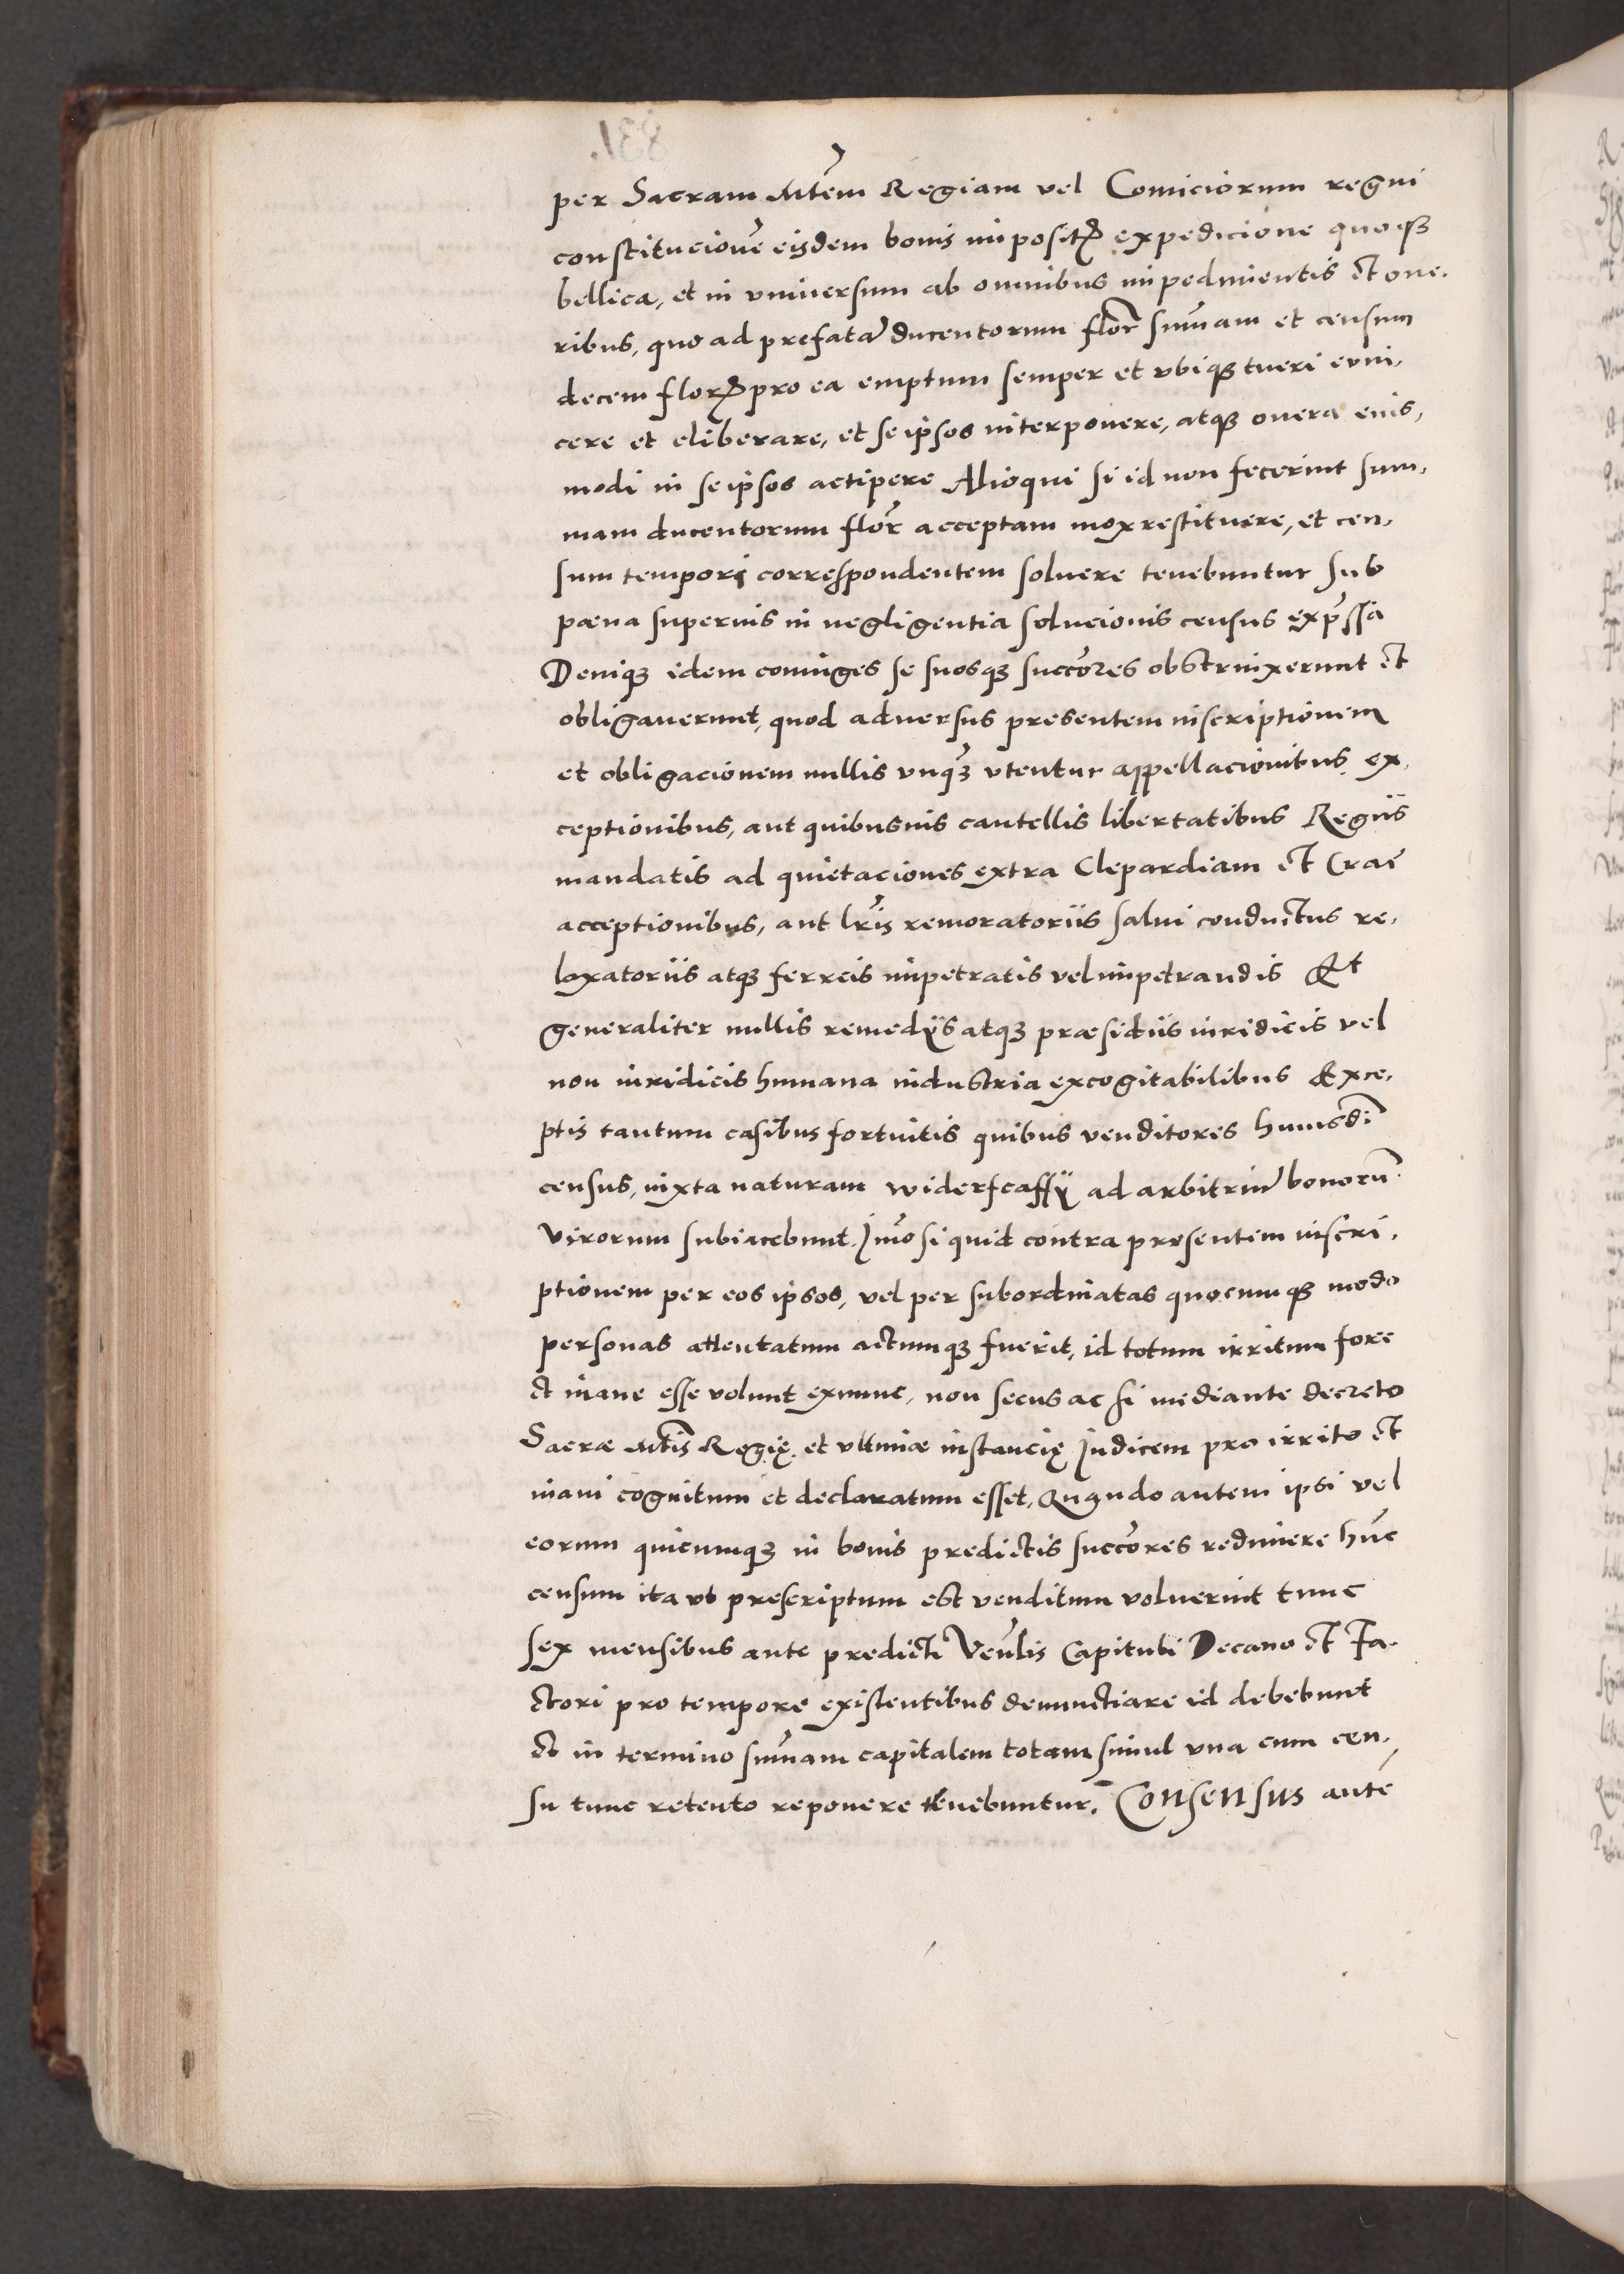 per Sacram Mtẽm Regiam vel Comiciorum regni
constitucionẽ eisdem bonis impositꝶ expedicione quoqꝫ
bellica, et in vniuersum ab omnibus impedimentis et one.
ribus, quo ad prefatã ducentorum flor̃ sum̃am et censum
decem florꝶ pro ea emptum semper et vbiqꝫ tueri euin.
cere et eliberare, et se ipsos interponere, atqꝫ onera eius,
modi in se ipsos accipere Alioqui si id non fecerint sum,
mam ducentorum flor̃ acceptam mox restituere, et cen,
sum tempori correspondentem soluere tenebuntur sub
pæna superius in negligentia solucionis census exp̃ssa
Deniqꝫ idem coniuges se suosqꝫ succõres obstrinxerunt et
obligauerunt, quod aduersus presentem inscriptionem
et obligacionem nullis vnqꝫ̃ vtentur appellacionibus, ex,
ceptionibus, aut quibusuis cautellis libertatibus Regiis
mandatis ad quietaciones extra Clepardiam et Crač
acceptionibus, aut lr̃is remoratoriis salui conductus re,
laxatoriis atqꝫ ferreis impetratis vel impetrandis Et
generaliter nullis remedijs atqꝫ præsidiis iuridicis vel
non iuridicis humana industria excogitabilibus Exce,
ptis tantum casibus fortuitis quibus venditores huiusd̃i
census, iuxta naturam widerfcaffij ad arbitriũ bonorũ
virorum subiacebunt. Im̃o si quid contra presentem inscri,
ptionem per eos ipsos, vel per subordinatas quocumqꝫ modo
personas attentatum actumqꝫ fuerit, id totum irritum fore
et inane esse volunt exnunc, non secus ac si mediante decreto
Sacræ Mtĩs Regię, et vltimæ instancię Iudicem pro irrito et
inani cognitum et declaratum esset, Quando autem ipsi vel
eorum quicumqꝫ in bonis predictis succõres redimere hũc
censum ita vt prescriptum est venditum voluerint tunc
sex mensibus ante predicti Veñlis Capituli Decano et Fa.
ctori pro tempore existentibus denunctiare id debebunt
et in termino sum̃am capitalem totam simul vna cum cen,
su tunc retento reponere tenebuntur. Consensus autẽ